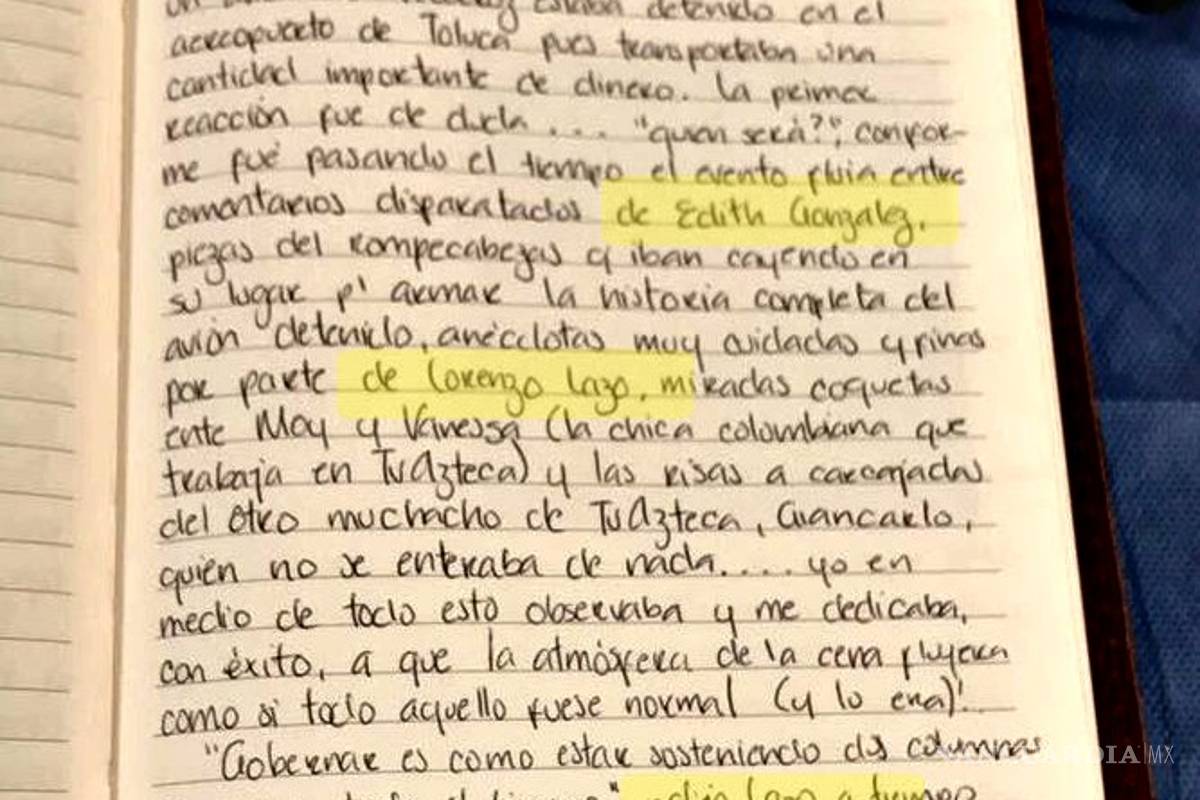 estaba detenido en el
aereopuerto de Toluca pues transportaba una
cantidad importante de dinero. La primer
reacción fue de duda . . . . "quien será?", confor-
me fué pasando el tiempo el evento fluía entre
comentarios disparatados de Edith Gonzalez,
piezas del rompecabezas q iban cayendo en
su lugar p' armar la historia completa del
avión detenido, anécdotas muy cuidadas y finas
por parte de Lorenzo Lazo, miradas coquetas
ente Moy y Vanessa (la chica colombiana que
trabaja en TvAzteca) y las risas a carcajadas
del otro muchacho de TvAzteca, Giancarlo,
quién no se enteraba de nada.... yo en
medio de todo esto observaba y me dedicaba,
con éxito, a que la atmósfera de la cena fluyera
como si todo aquello fuese normal (y lo era)!..
"Gobernar es como estar sosteniendo dos columnas
Lazo a tiempo
VANGUARDIA|MX